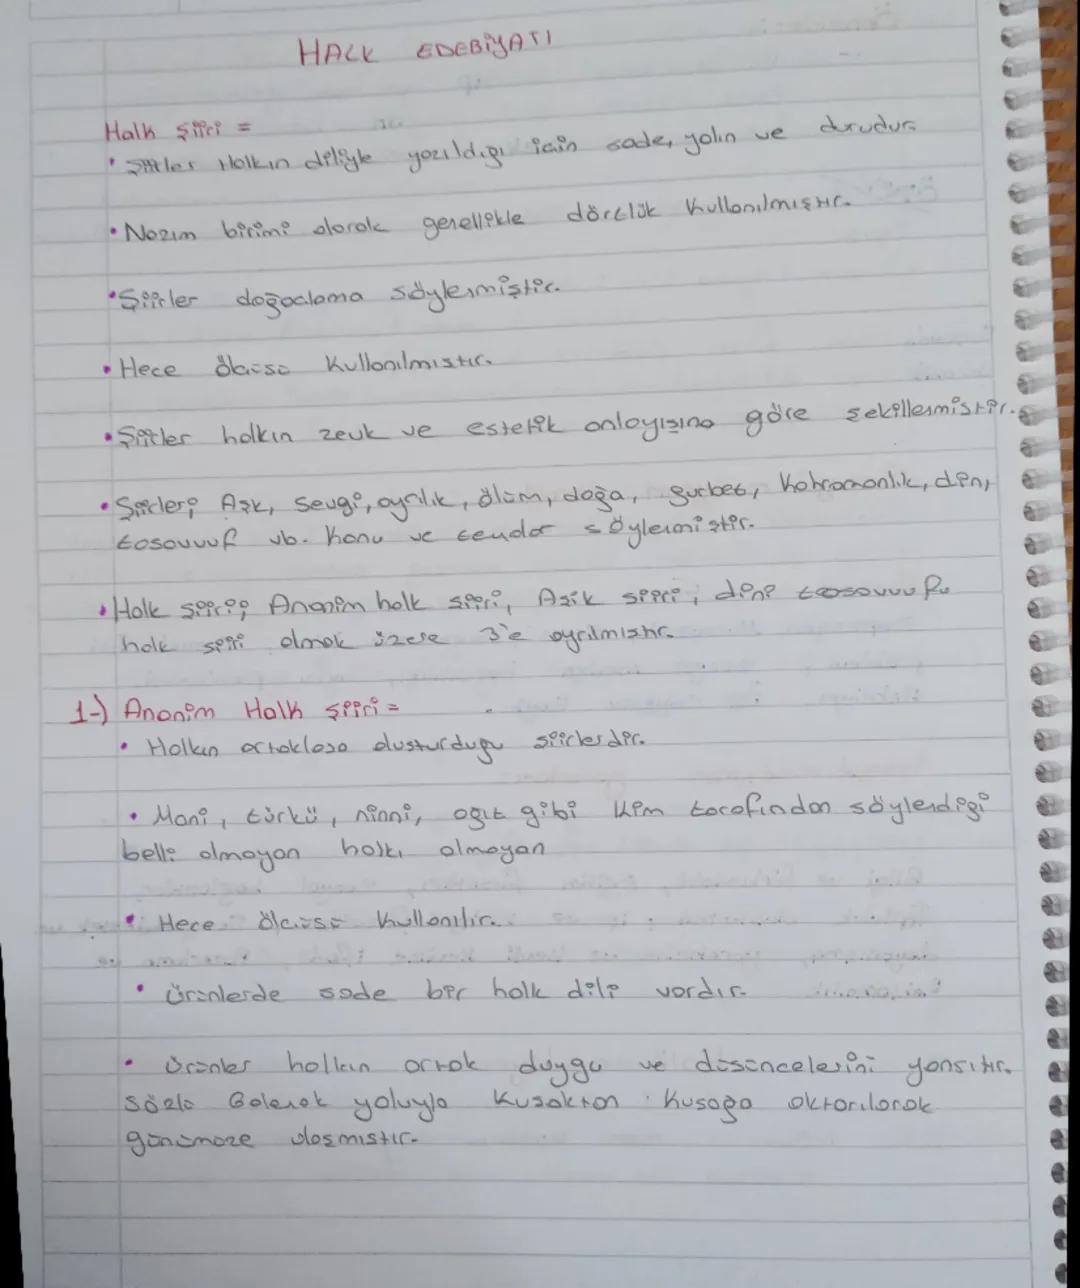 HALK EDEBİYATI
Halk şiiri =
• Şiirler Halkın diliyle yazıldığı için sade, yalın ve durudur.
• Nazım birimi olarak genellikle dörtlük kullanılmıştır.
• Şiirler doğaçlama söylenmiştir.
• Hece ölçüsü kullanılmıştır.
• Şiirler halkın zevk ve estetik anlayışına göre şekillenmiştir.
• Şiirler; Aşk, sevgi, ayrılık, ölüm, doğa, gurbet, kahramanlık, din,
tasavvuf vb. konu ve söylenmiştir.
• Halk şiiri; Anonim halk şiiri, Aşık şiiri, dini tasavvufu
halk şiiri olmak üzere 3'e ayrılmıştır.
1-) Anonim Halk şiiri =
• Halkın ortaklaşa oluşturduğu şiirlerdir.
• Mani, türkü, ninni, ağıt gibi kim tarafından söylendiği
belli olmayan olmayan
• Hece ölçüsü kullanılır.
• Ürünlerde sade bir halk dili vardır.
• Ürünler halkın ortak duygu ve düşüncelerini yansıtır.
Sözlü Gelenek yoluyla kuşaktan kuşağa aktarılarak
günümüze ulaşmıştır.